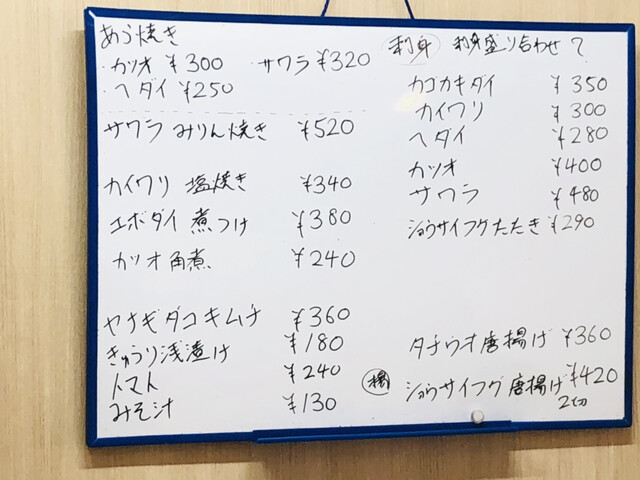 あら焼き
・カツオ ¥300 ・サワラ ¥320
・ヘダイ ¥250
サワラ みりん焼き ¥520
カイワリ 塩焼き ¥340
エボダイ 煮つけ ¥380
カツオ角煮 ¥240
ヤナギダコキムチ ¥360
きゅうり浅漬け ¥180
トマト ¥240
みそ汁 ¥130
刺身 刺身盛り合わせ
カゴカキダイ ¥350
カイワリ ¥300
ヘダイ ¥280
カツオ ¥400
サワラ ¥480
ショウサイフグたたき ¥290
タチウオ唐揚げ ¥360
ショウサイフグ唐揚げ ¥420